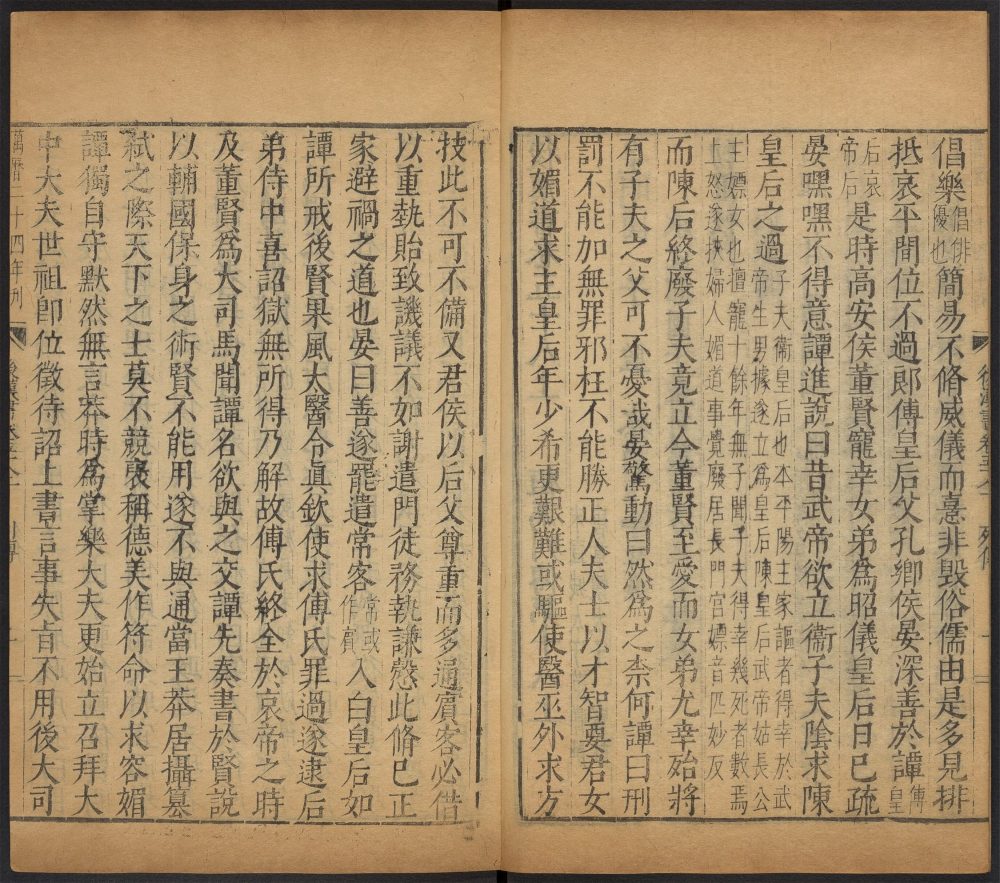 倡樂倡俳優也簡易不脩威儀而憙非毀俗儒由是多見排
抵哀平間位不過郎傅皇后父孔鄉侯晏深善於譚傅皇
后哀帝后是時高安侯董賢寵幸女弟爲昭儀皇后日已疏
晏嘿嘿不得意譚進說曰昔武帝欲立衞子夫陰求陳
皇后之過子夫衞皇后也本平陽主家謳者得幸於武
帝生男據遂立爲皇后陳皇后武帝姑長公
主嫖女也擅寵十餘年無子聞子夫得幸幾死者數焉
上怒遂挾婦人媚道事覺廢居長門宮嫖音匹妙反
而陳后終廢子夫竟立今董賢至愛而女弟尤幸殆將
有子夫之父可不憂哉晏驚動曰然爲之柰何譚曰刑
罰不能加無罪邪枉不能勝正人夫士以才智要君女
以媚道求主皇后年少希更艱難或驅使醫巫外求方
技此不可不備又君侯以后父尊重而多通賓客必借
以重埶貽致譏議不如謝遣門徒務執謙慤此脩己正
家避禍之道也晏曰善遂罷遣常客常或作賓入白皇后如
譚所戒後賢果風太醫令眞欽使求傅氏罪過遂逮后
弟侍中喜詔獄無所得乃解故傅氏終全於哀帝之時
及董賢爲大司馬聞譚名欲與之交譚先奏書於賢說
以輔國保身之術賢不能用遂不與通當王莽居攝篡
弒之際天下之士莫不競襃稱德美作符命以求容媚
譚獨自守默然無言莽時爲掌樂大夫更始立召拜大
中大夫世祖卽位徵待詔上書言事失旨不用後大司
萬曆二十四年刊